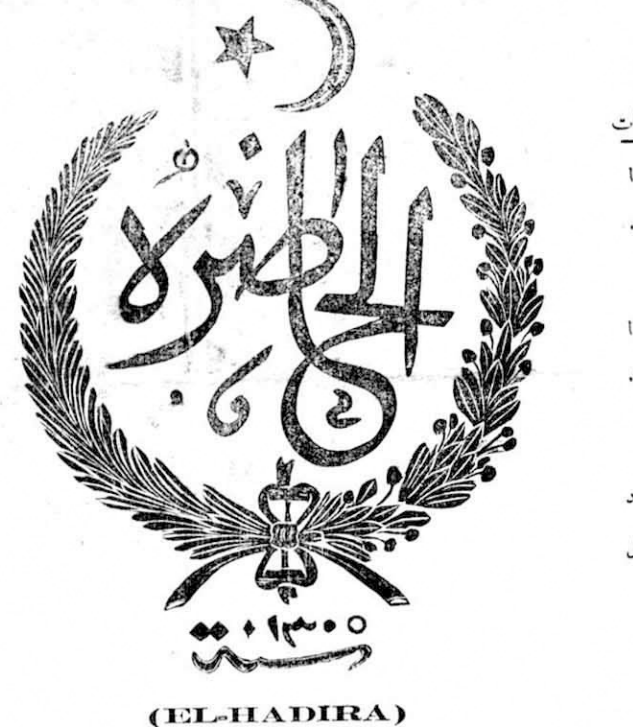 الحاضرة
سنة ١٣٠٥
(EL-HADIRA)